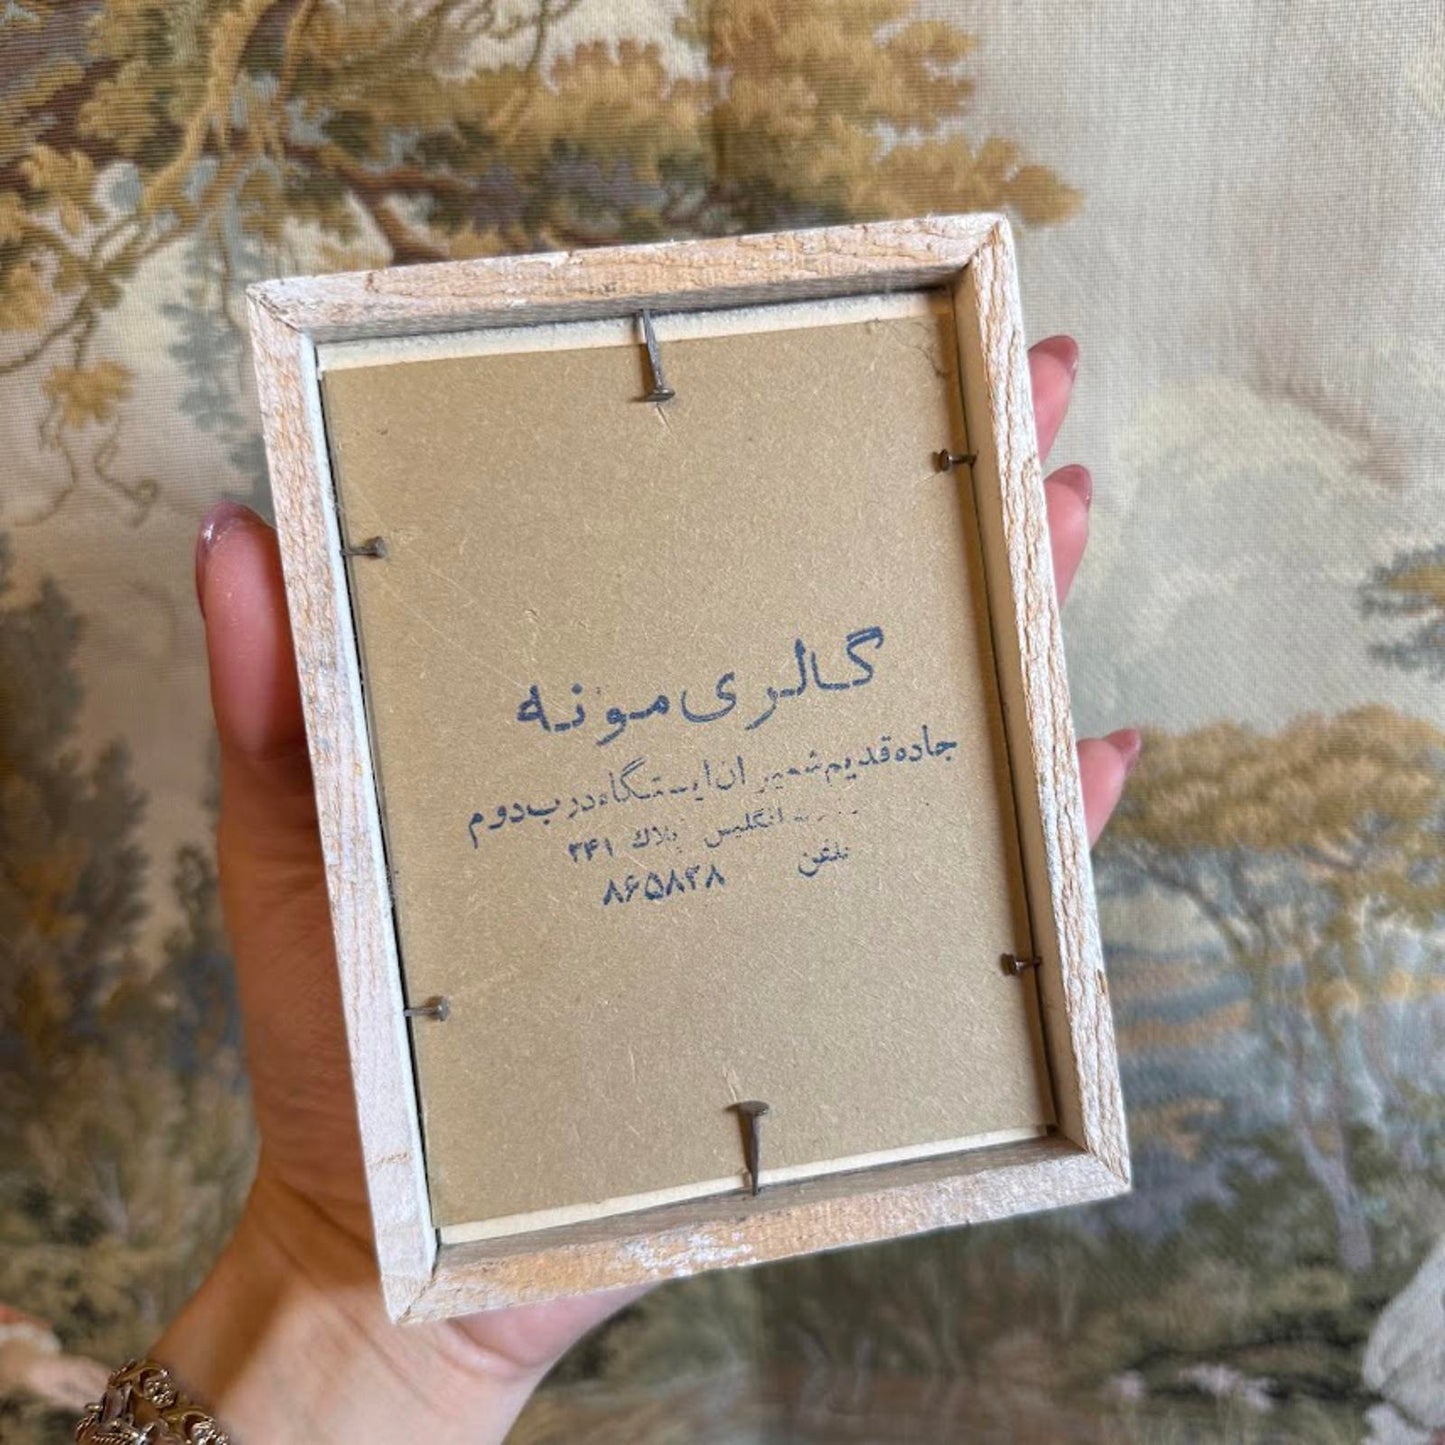 گالری مونه
جاده قدیم شمیران ایستگاه درب دوم
انگلیس پلاك ۳۴۱
تلفن ۸۶۵۸۴۸